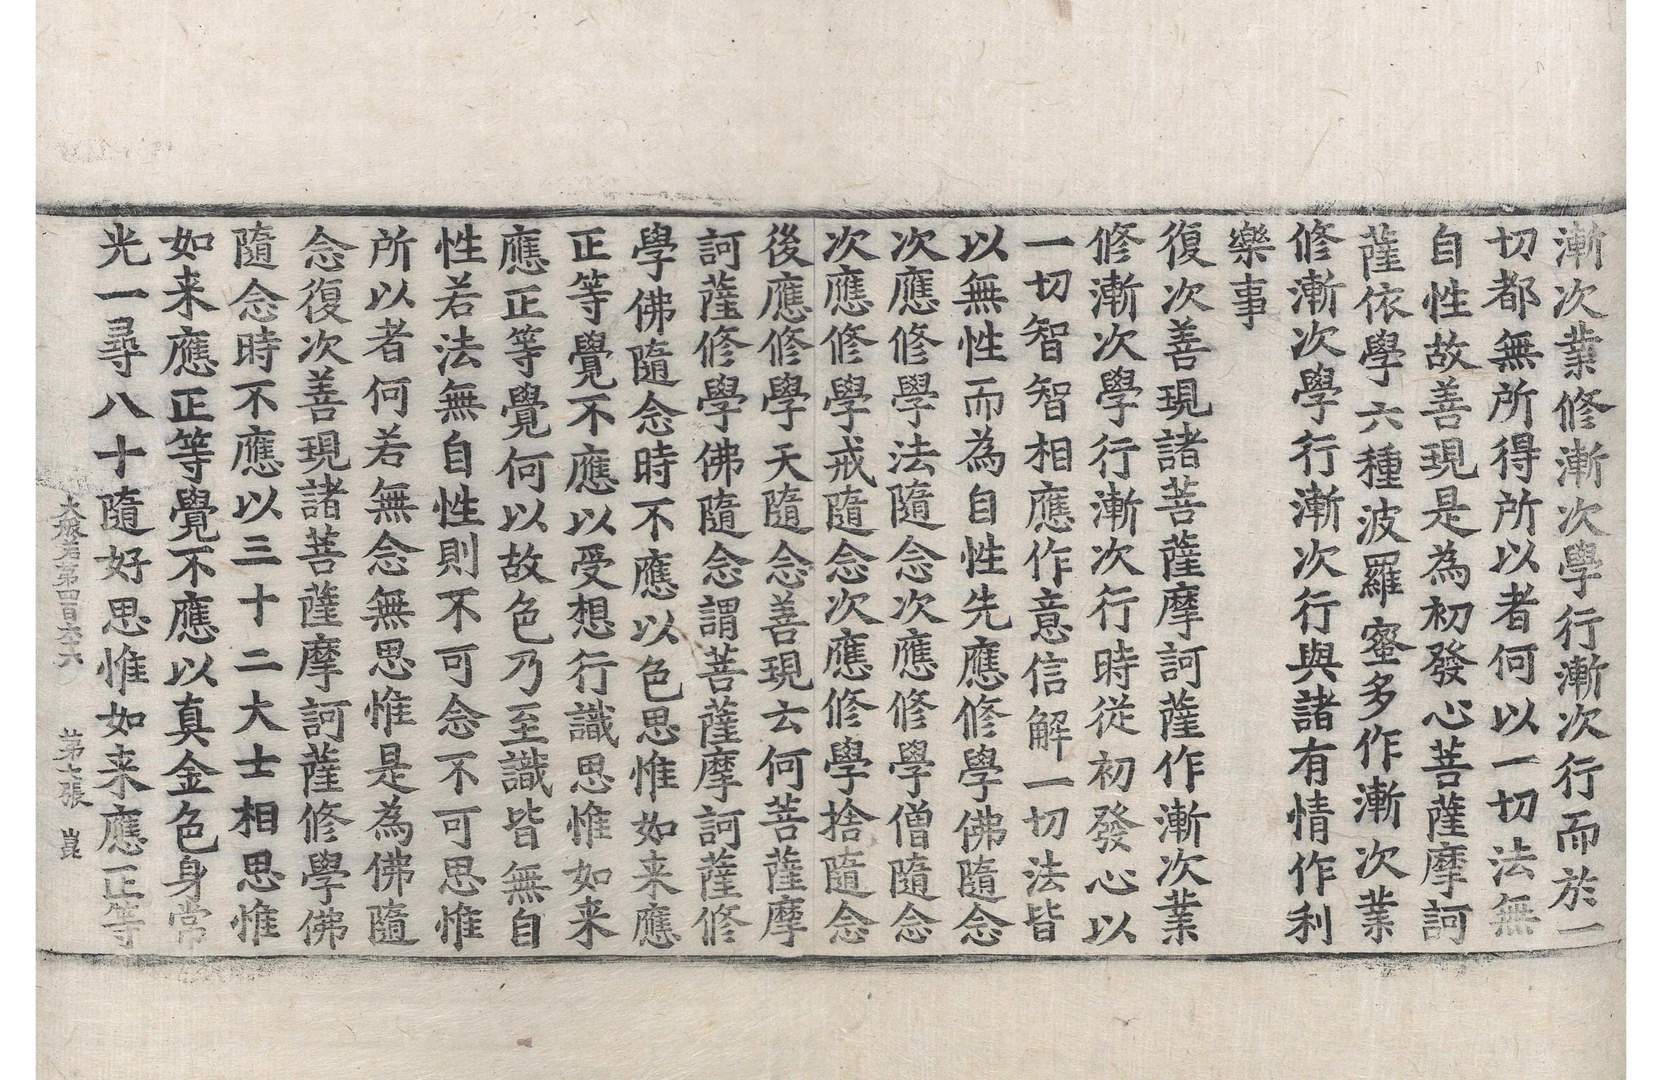 漸次業修漸次學行漸次行而於一
切都無所得所以者何以一切法無
自性故善現是為初發心菩薩摩訶
薩依學六種波羅蜜多作漸次業
修漸次學行漸次行與諸有情作利
樂事
復次善現諸菩薩摩訶薩作漸次業
修漸次學行漸次行時從初發心以
一切智智相應作意信解一切法皆
以無性而為自性先應修學佛隨念
次應修學法隨念次應修學僧隨念
次應修學戒隨念次應修學捨隨念
後應修學天隨念善現云何菩薩摩
訶薩修學佛隨念謂菩薩摩訶薩修
學佛隨念時不應以色思惟如来應
正等覺不應以受想行識思惟如来
應正等覺何以故色乃至識皆無自
性若法無自性則不可念不可思惟
所以者何若無念無思惟是為佛隨
念復次善現諸菩薩摩訶薩修學佛
隨念時不應以三十二大士相思惟
如来應正等覺不應以真金色身常
光一尋八十隨好思惟如来應正等
大般若第四百六十六 第七張 崑